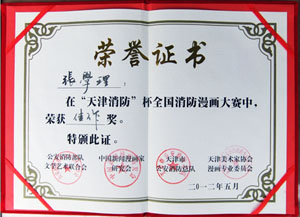 荣誉证书
張學理：
在“天津消防”杯全国消防漫画大赛中，
荣获佳作奖。
特颁此证。
公安消防部队 中国新闻漫画家 天津市 天津美术家协会
文学艺术联合会 研究会 公安消防总队 漫画专业委员会
二〇一二年五月